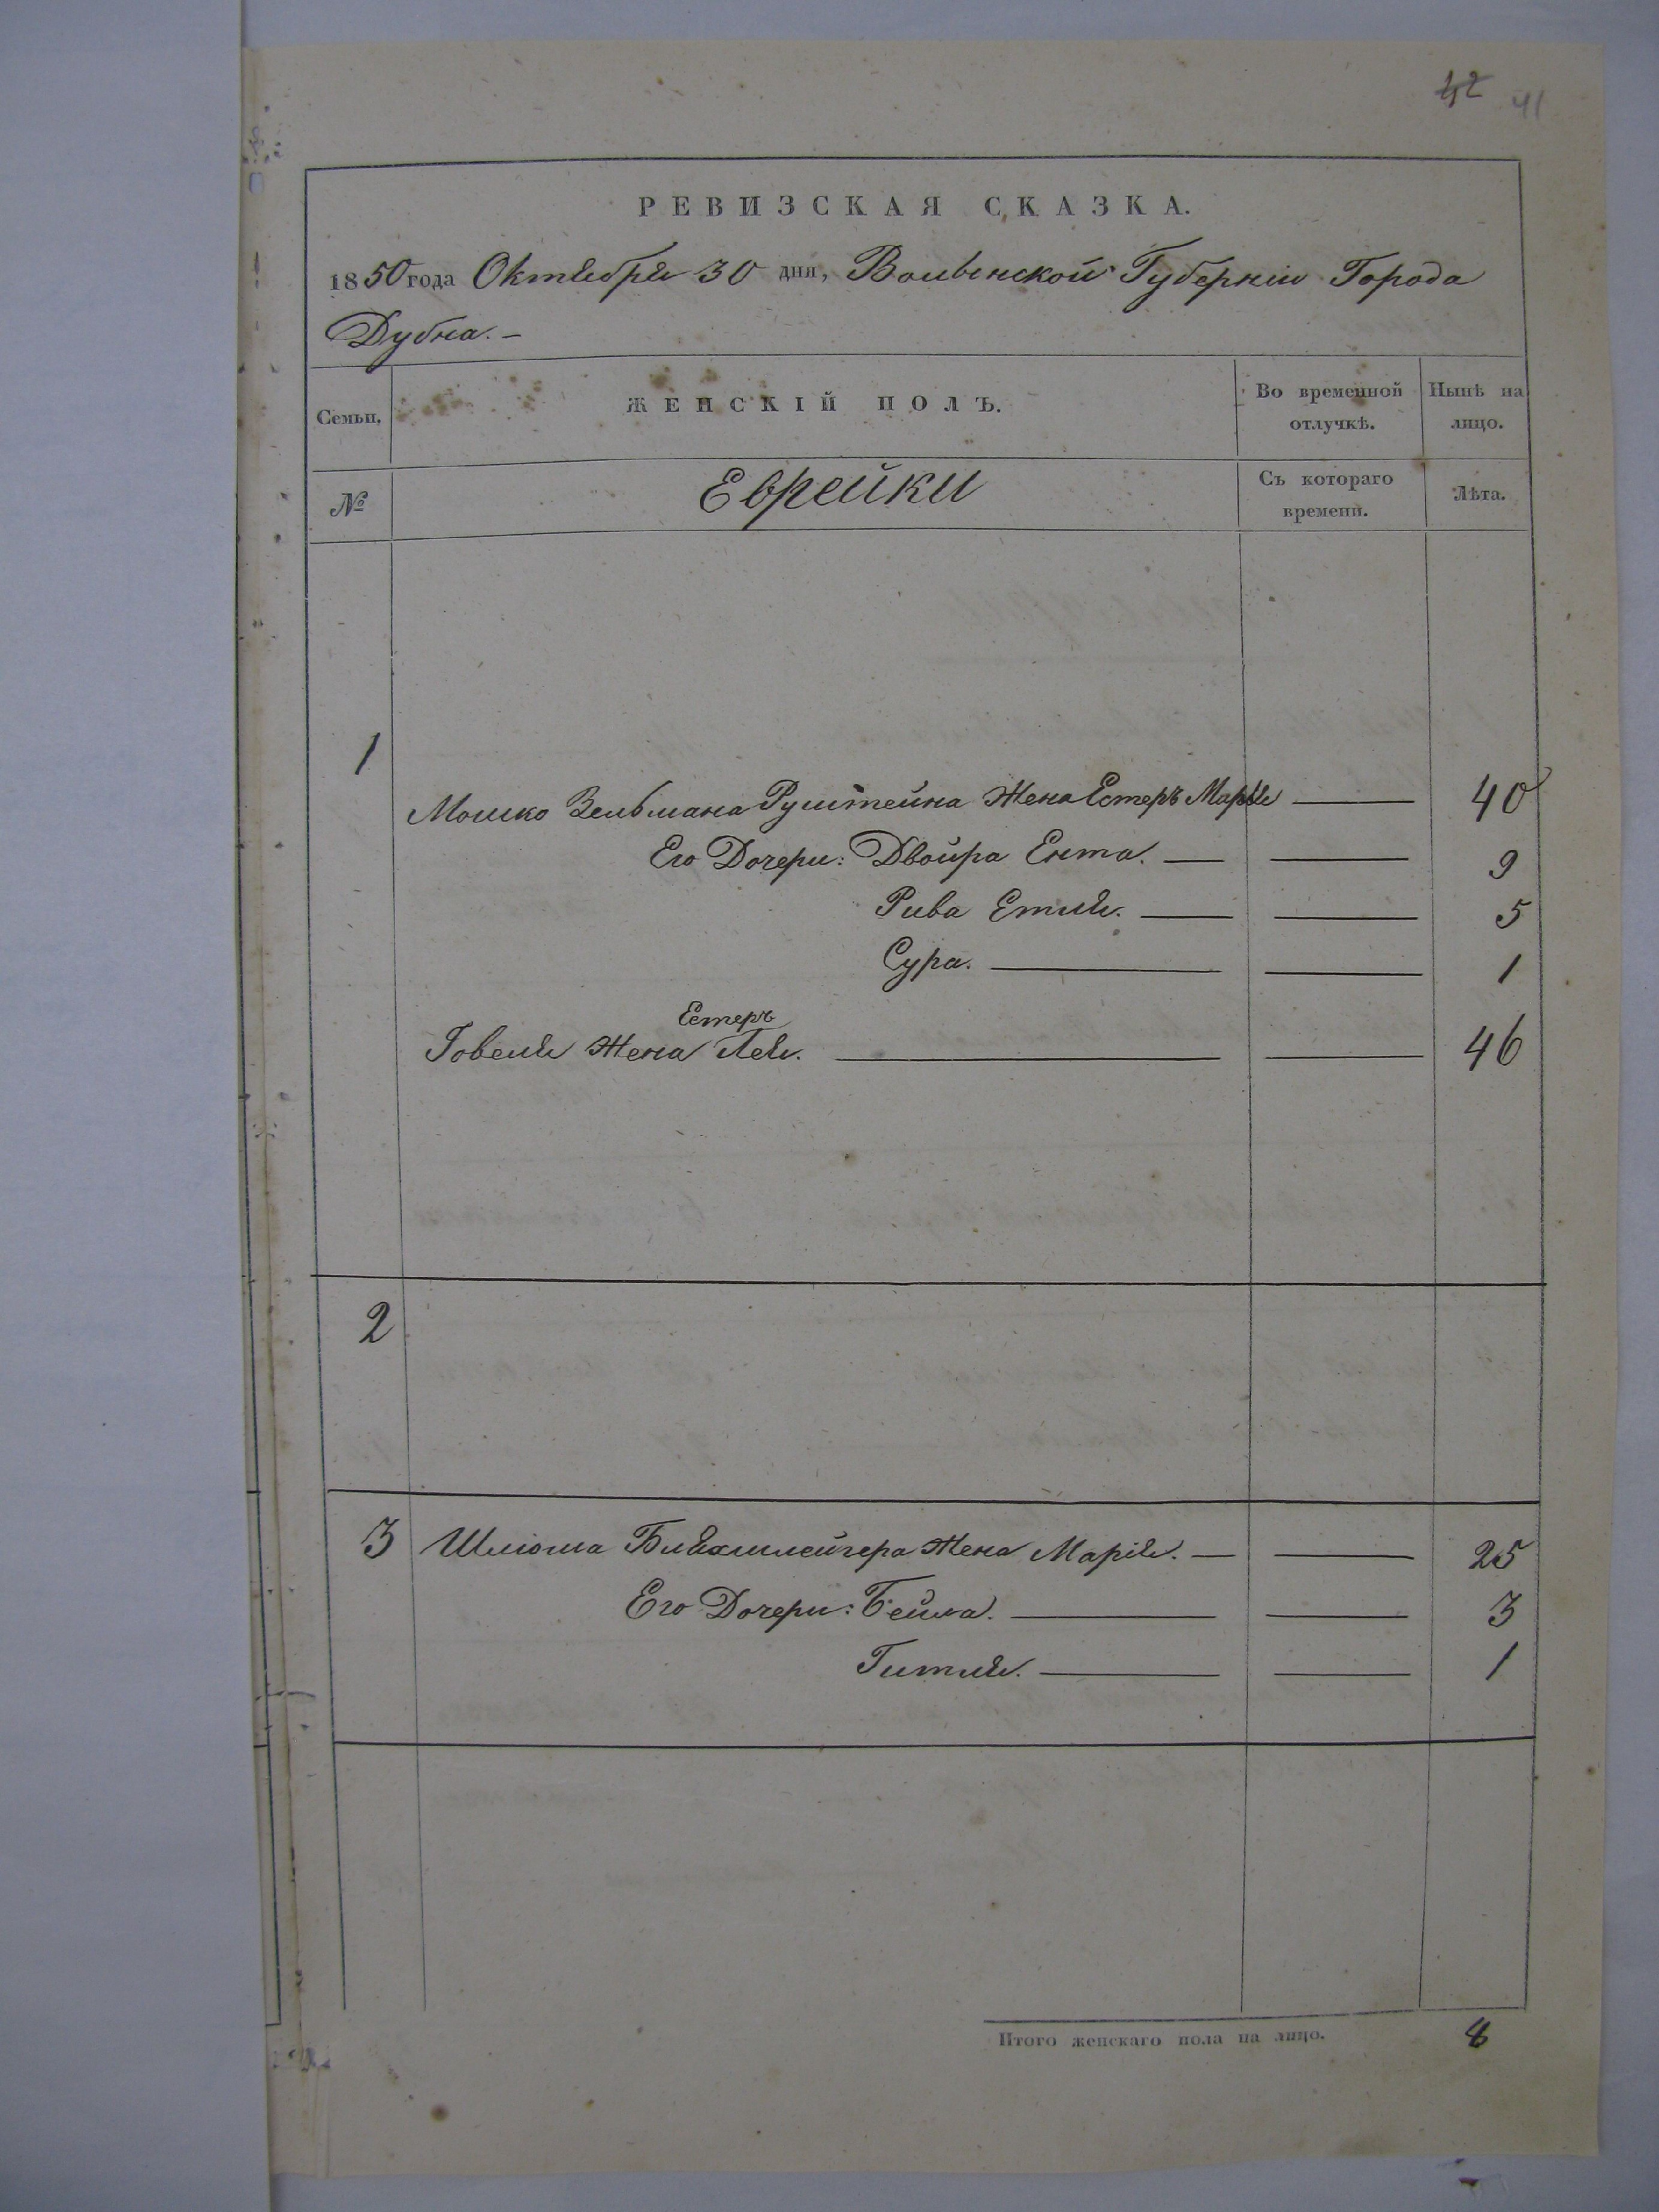 42 41
РЕВИЗСКАЯ СКАЗКА.
1850 года Октября 30 дня, Волынской Губерніи Города
Дубна. –
Семьи.
ЖЕНСКІЙ ПОЛЪ.
Во временной
отлучкѣ.
Нынѣ на
лицо.
№
Еврейки
Съ котораго
времени.
Лѣта.
1
Мошко Зельмана Руштейна Жена Естеръ Марія 40
Его Дочери: Двойра Ента. 9
Рива Етля. 5
Сура. 1
Естеръ
Іовеля Жена Лея. 46
2
3 Шлюма Жена Марія. 25
Его Дочери: Бейла. 3
Гитля. 1
Итого женскаго пола на лицо. 8